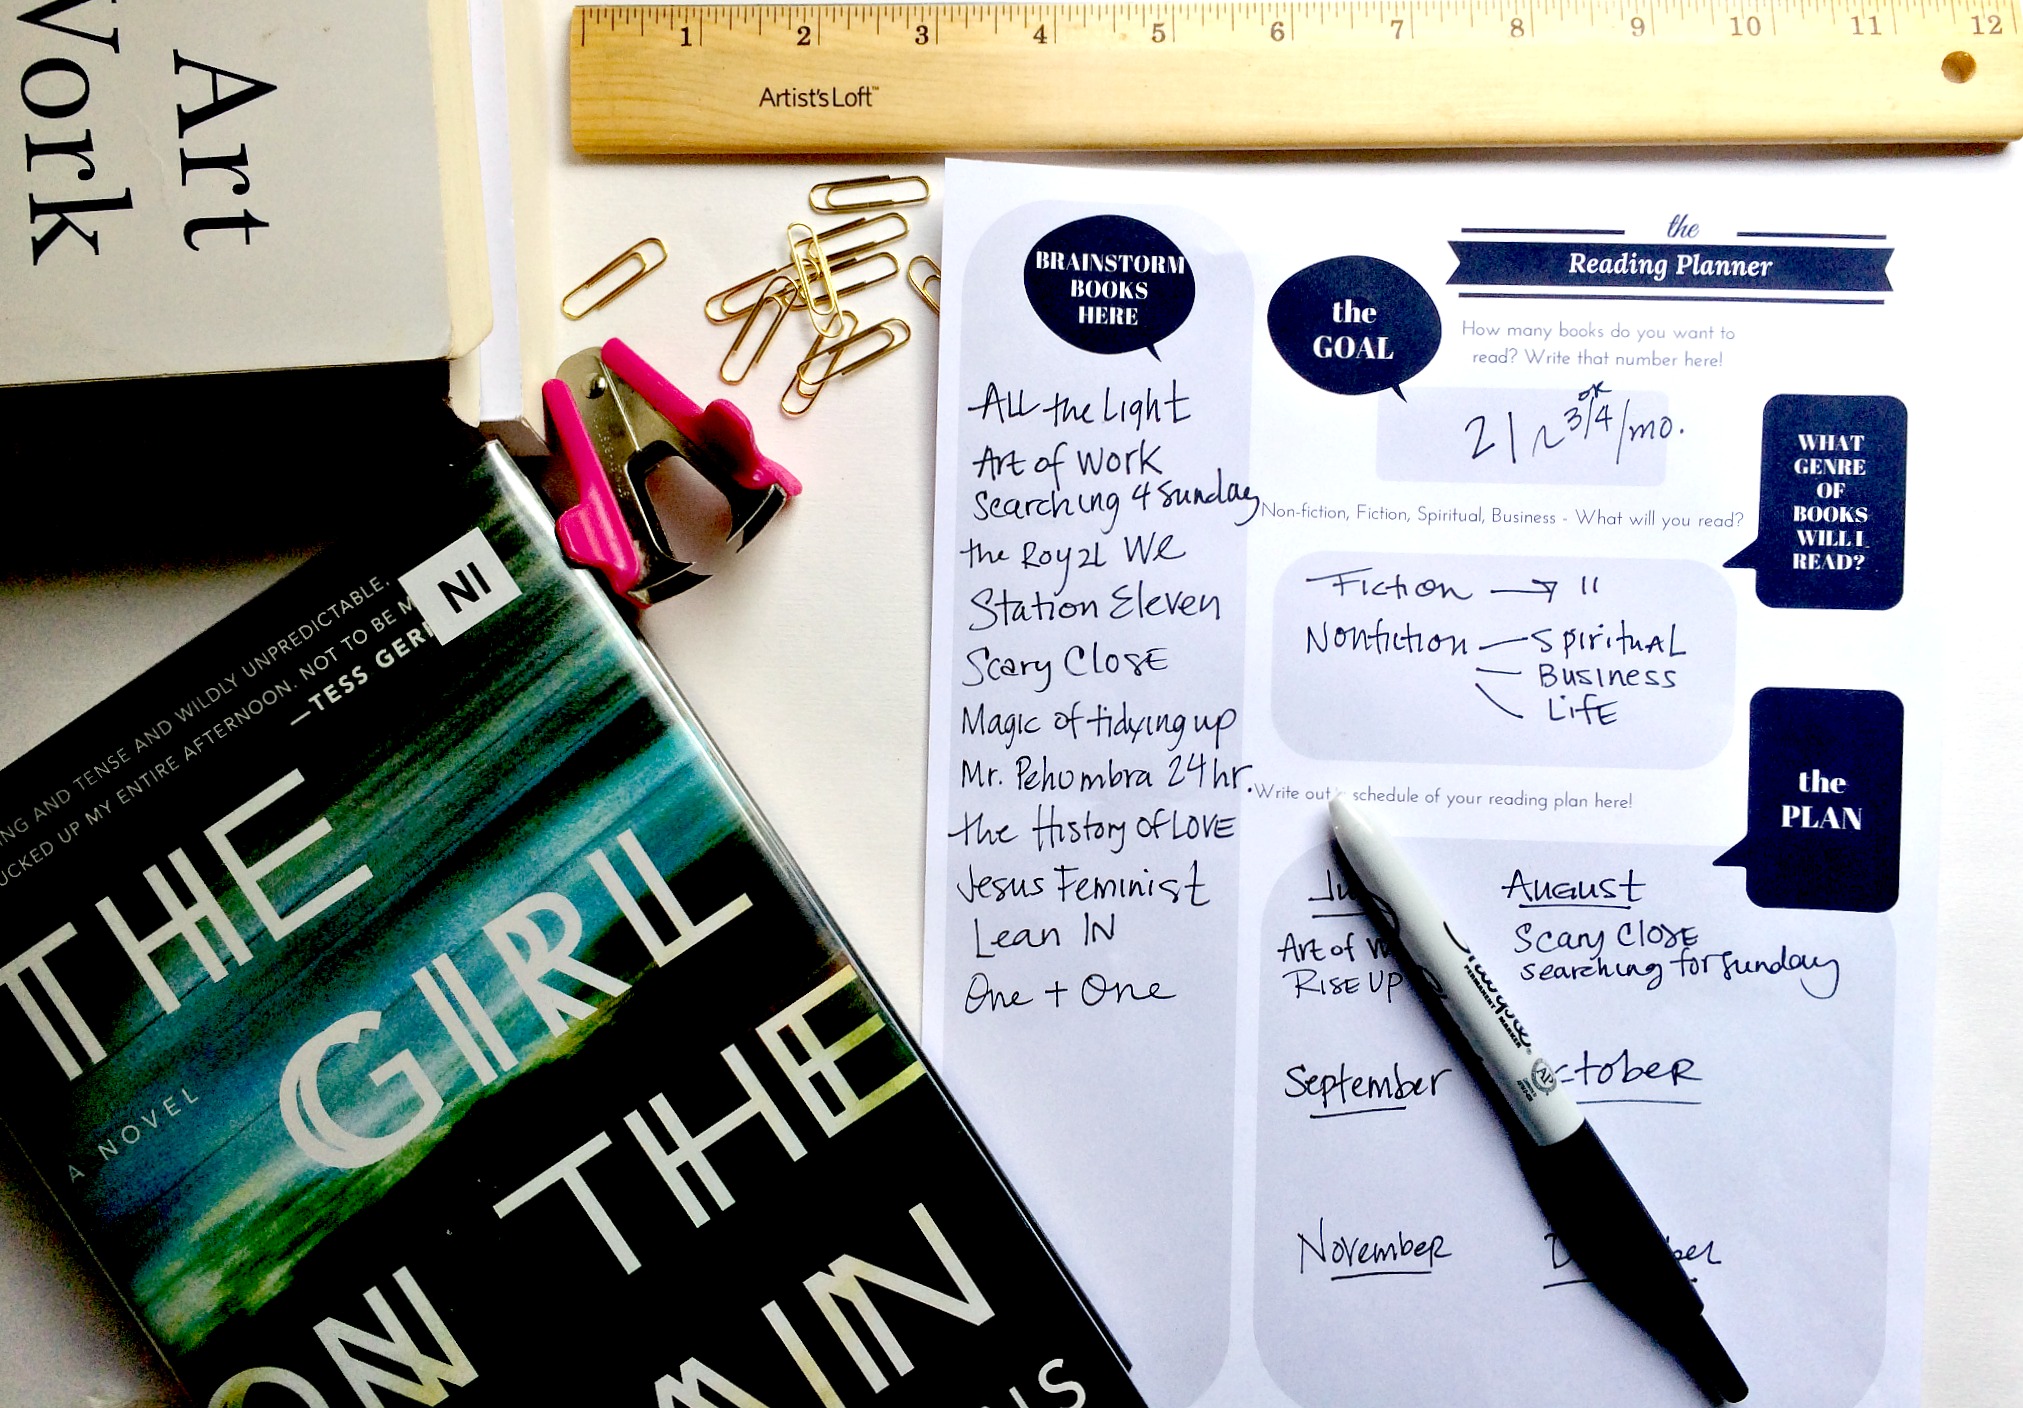 Art
Work
1 2 3 4 5 6 7 8 9 10 11 12
Artist'sLoft™
BRAINSTORM
BOOKS
HERE
ALL the Light
Art of Work
Searching 4 Sunday
the Royal We
Station Eleven
Scary Close
Magic of tidying up
Mr. Pehumbra 24hr.
the History of LOVE
Jesus Feminist
Lean IN
One + One
the
Reading Planner
the
GOAL
How many books do you want to
read? Write that number here!
21 ~ 3/4/mo.
or
WHAT
GENRE
OF
BOOKS
WILL I
READ?
Non-fiction, Fiction, Spiritual, Business - What will you read?
Fiction → 11
Nonfiction - Spiritual
- Business
\ Life
the
PLAN
Write out schedule of your reading plan here!
August
Art of
Rise Up
Scary Close
searching for sunday
September
November
PERMANENT MARKER
AP
NI
NG AND TENSE AND WILDLY UNPREDICTABLE.
UCKED UP MY ENTIRE AFTERNOON. NOT TO BE M
—TESS GER
THE
GIRL
ON THE
A NOVEL